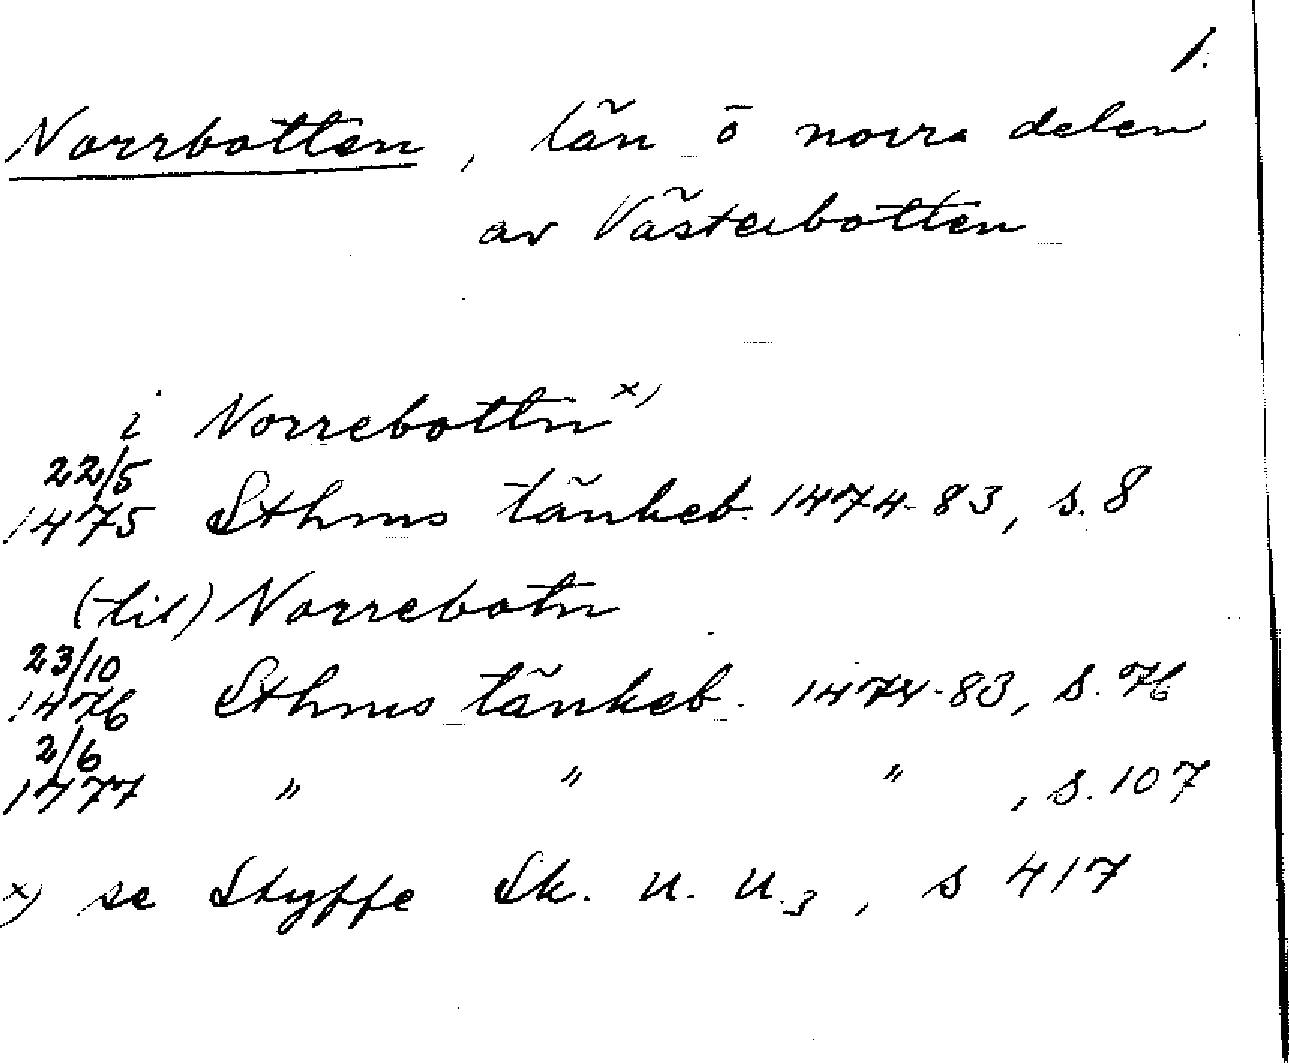 1.
Norrbotten, län ō norra delen
av Västerbotten
i Norrebottn x)
22/5
1475 Sthms tänkeb. 1474-83, s. 8
(til) Norrebotn
23/10
1476 Sthms tänkeb. 1474-83, s. 76
2/6
1477 " " " , s. 107
x) se Styffe Sk. u. u.3, s 417